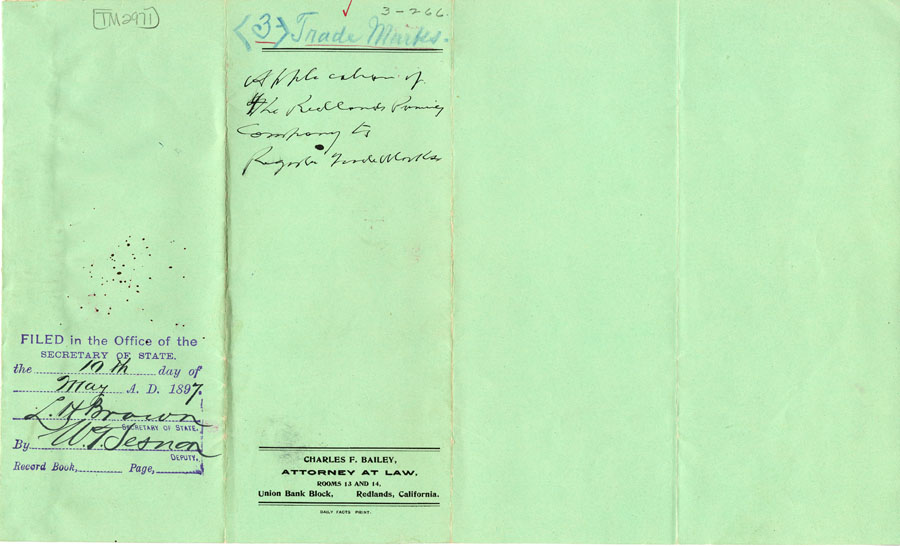 TM2971
3-266.
(3) Trade Marks.
Application of
the Redlands
Company to
Register Trade Marks
FILED in the Office of the
SECRETARY OF STATE.
the 19th day of
May A. D. 1897.
L. H. Brown
SECRETARY OF STATE.
By W. T. Sesnon
DEPUTY.
Record Book, Page,
CHARLES F. BAILEY,
ATTORNEY AT LAW.
ROOMS 13 AND 14,
Union Bank Block, Redlands, California.
DAILY FACTS PRINT.